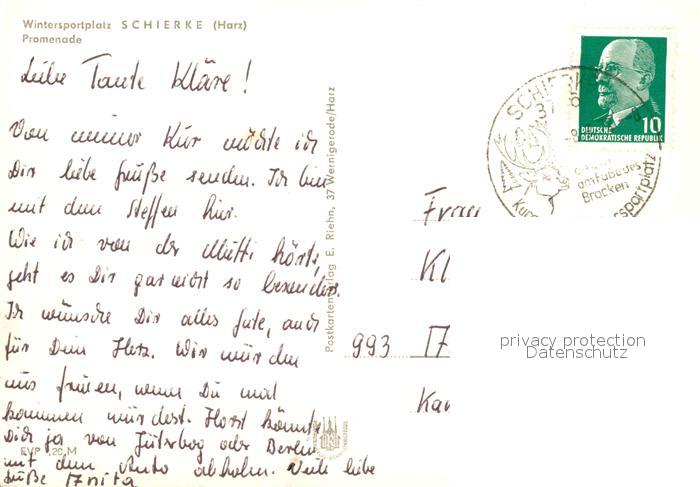 Wintersportplatz SCHIERKE (Harz)
Promenade
Liebe Tante Kläre!
Von meiner Kur möchte ich
Dir liebe Grüße senden. Ich bin
mit dem Steffen hier.
Wie ich von der Mutti hörte,
geht es Dir gar nicht so besonders.
Ich wünsche Dir alles Gute, auch
für Dein Herz. Wir würden
uns freuen, wenn Du mal
kommen würdest. Horst könnte
Dich ja von Jüterbog oder Berlin
mit dem Auto abholen. Viele liebe
Grüße Anita
EVP -,20 M
Postkartenverlag E. Riehn, 37 Wernigerode/Harz
DEUTSCHE
DEMOKRATISCHE REPUBLIK
10
SCHIERKE
37
am Fuße des
Brocken
Frau
Kl
993
Kar
privacy protection
Datenschutz